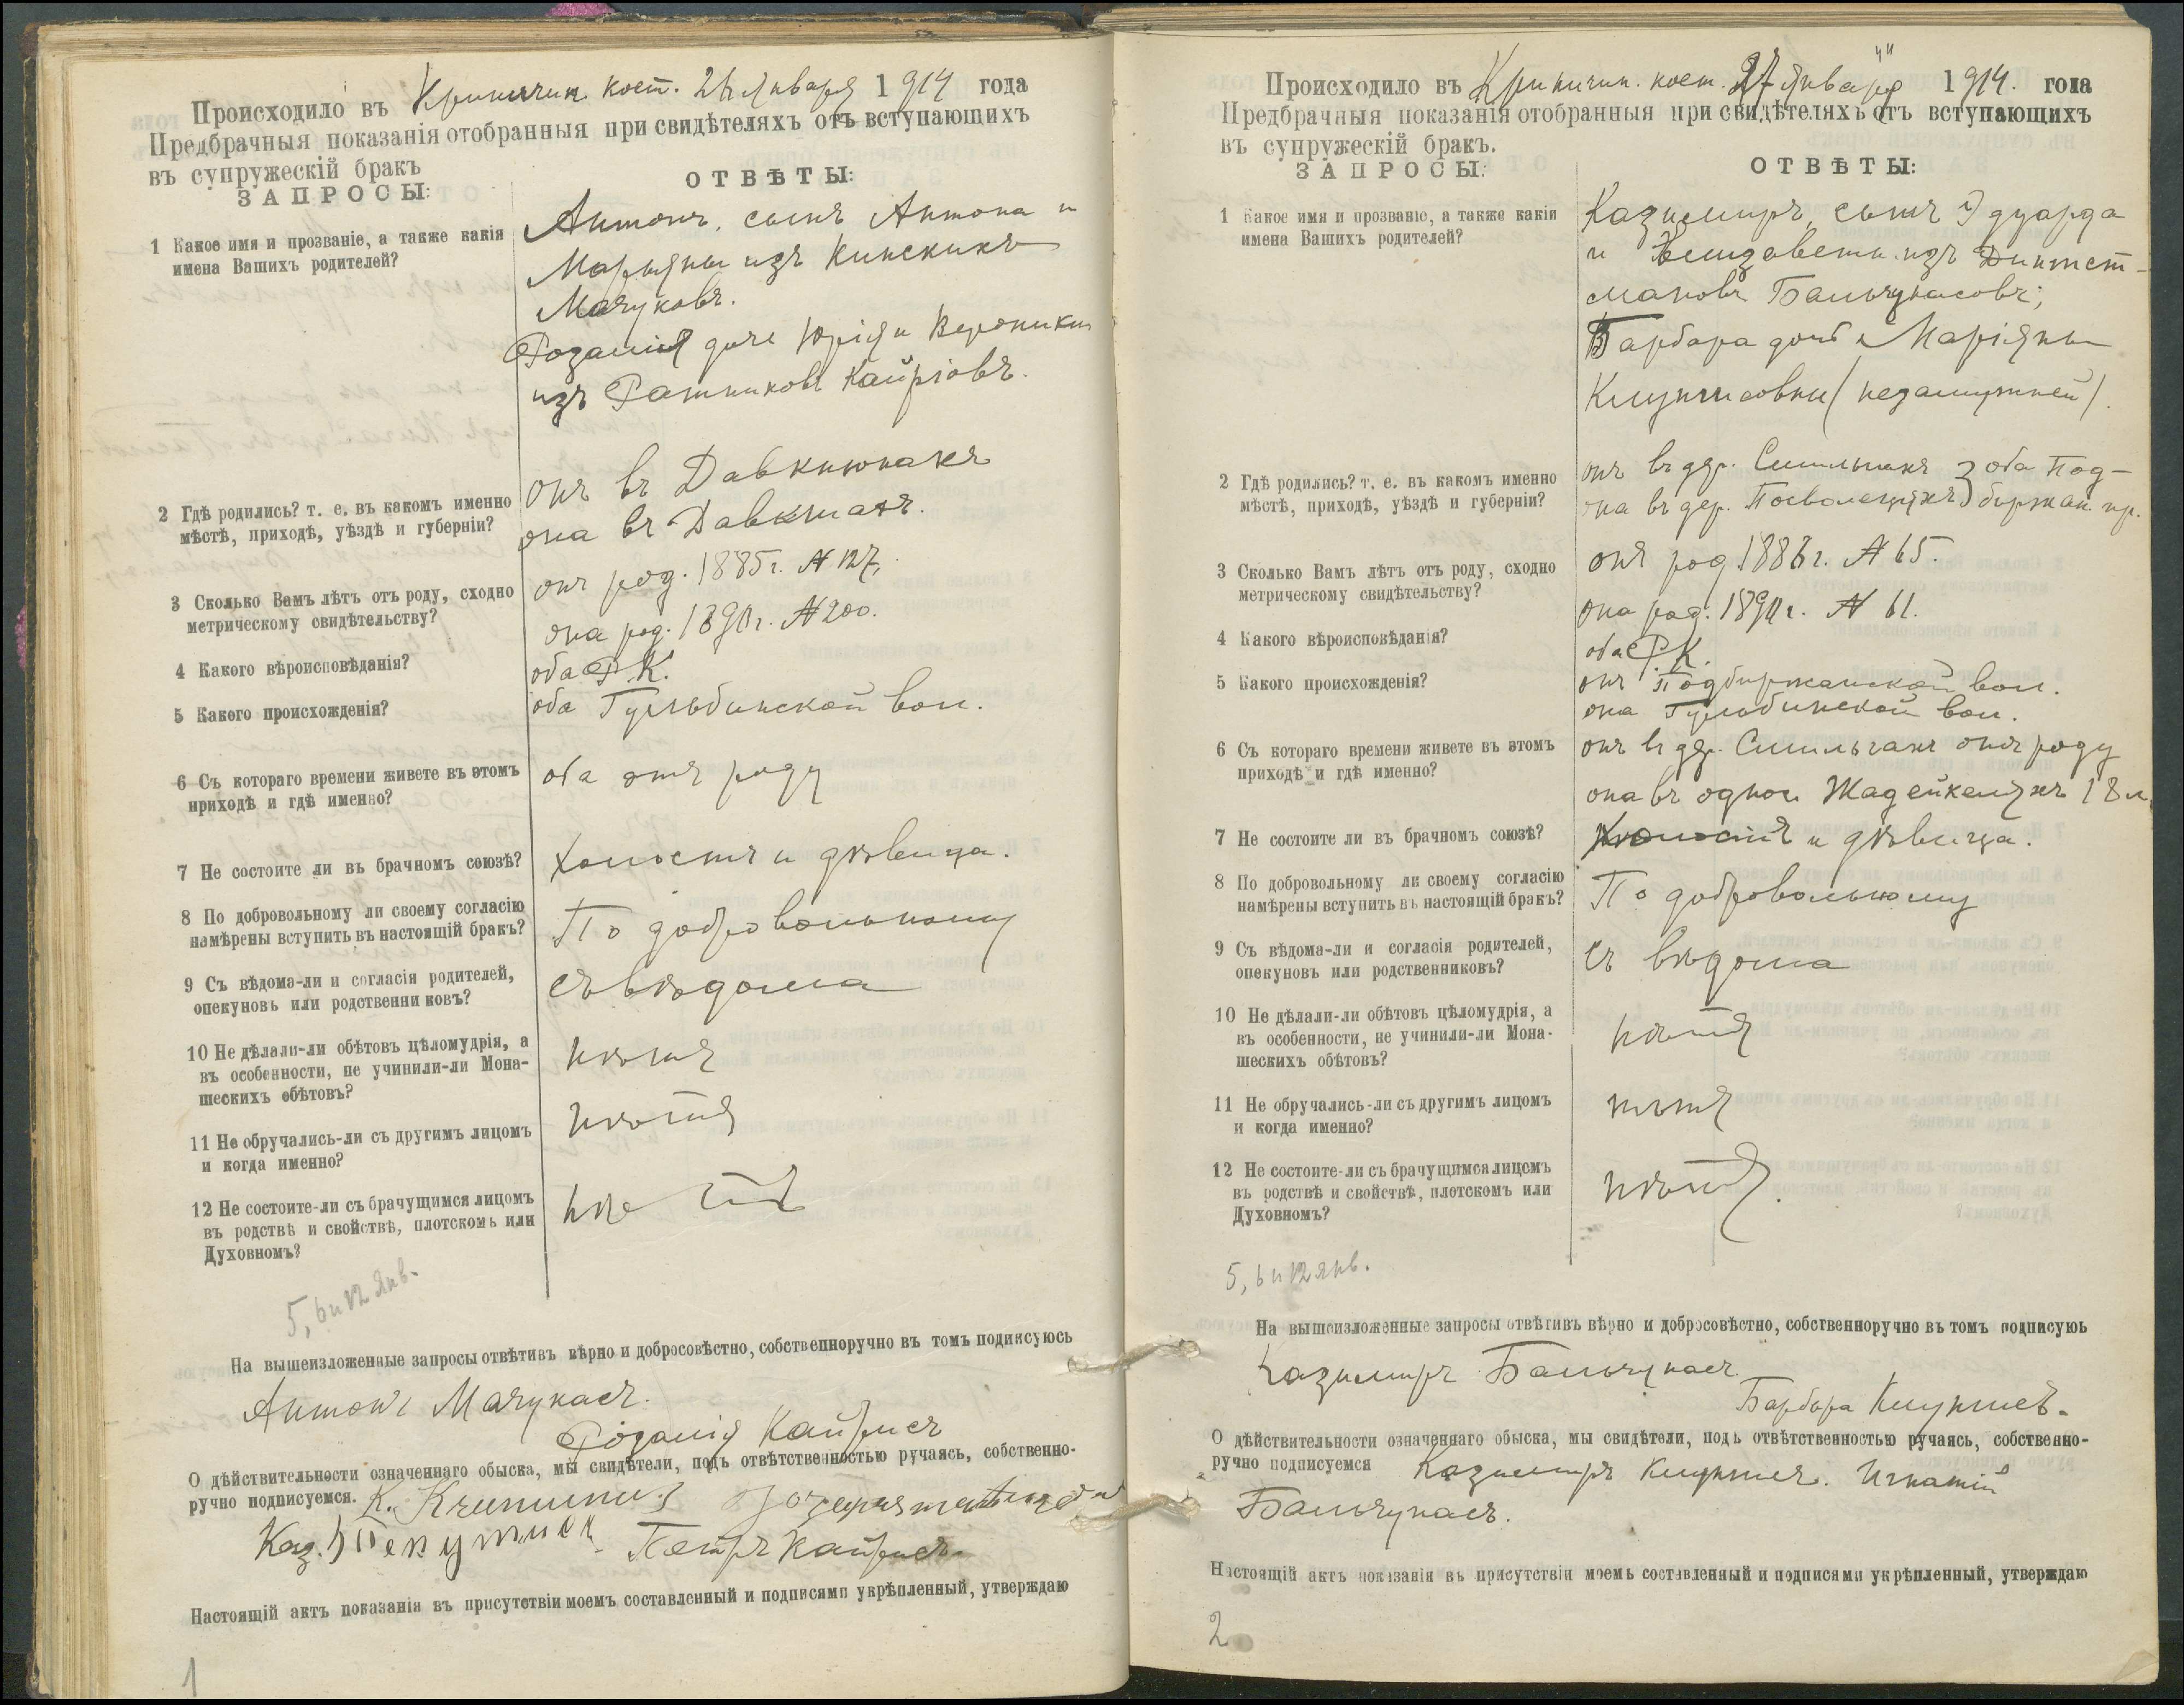 Происходило въ Криничин. кост. 26 Января 1914 года
Предбрачныя показанія отобранныя при свидѣтеляхъ отъ вступающихъ
въ супружескій бракъ
ЗАПРОСЫ:
ОТВѢТЫ:
1 Какое имя и прозваніе, а также какія
имена Вашихъ родителей?
Антонъ, сынъ Антона и
Марьяны изъ Кинскихъ
Мачуковъ.
Розалія дочь Юрія и Вероники
изъ Ратниковъ Кайрісвъ.
2 Гдѣ родились? т. е. въ какомъ именно
мѣстѣ, приходѣ, уѣздѣ и губерніи?
онъ въ Давкнюнахъ
она въ Давкшахъ.
3 Сколько Вамъ лѣтъ отъ роду, сходно
метрическому свидѣтельству?
онъ род. 1885 г. № 127,
она род. 1890 г. № 200.
4 Какого вѣроисповѣданія?
оба Р. К.
5 Какого происхожденія?
оба Гульбинской вол.
6 Съ котораго времени живете въ этомъ
приходѣ и гдѣ именно?
оба отъ роду
7 Не состоите ли въ брачномъ союзѣ?
холостъ и дѣвица.
8 По добровольному ли своему согласію
намѣрены вступить въ настоящій бракъ?
По добровольному
9 Съ вѣдома-ли и согласія родителей,
опекуновъ или родственниковъ?
съ вѣдома
10 Не дѣлали-ли обѣтовъ цѣломудрія, а
въ особенности, не учинили-ли Мона-
шескихъ обѣтовъ?
нѣтъ
11 Не обручались-ли съ другимъ лицомъ
и когда именно?
нѣтъ
12 Не состоите-ли съ брачущимся лицомъ
въ родствѣ и свойствѣ, плотскомъ или
Духовномъ?
нѣтъ
5, 6 и 12 янв.
На вышеизложенные запросы отвѣтивъ вѣрно и добросовѣстно, собственноручно въ томъ подписуюсь
Антонъ Мачукасъ.
Розалія Кайрисъ
О дѣйствительности означеннаго обыска, мы свидѣтели, подъ отвѣтственностью ручаясь, собственно-
ручно подписуемся.
Каз. Петръ Кайрисъ.
Настоящій актъ показанія въ присутствіи моемъ составленный и подписями укрѣпленный, утверждаю
1
Происходило въ Криничин. кост. 27 Января 1914. года
Предбрачныя показанія отобранныя при свидѣтеляхъ отъ вступающихъ
въ супружескій бракъ.
ЗАПРОСЫ:
ОТВѢТЫ:
1 Какое имя и прозваніе, а также какія
имена Вашихъ родителей?
Казимиръ, сынъ Эдуарда
и Елизаветы изъ Динтст-
мановъ Бальчунасовъ;
Барбара дочь Маріяны
Клункисовны (незамужней).
2 Гдѣ родились? т. е. въ какомъ именно
мѣстѣ, приходѣ, уѣздѣ и губерніи?
онъ въ дер. Смильгахъ } оба Под-
она въ дер. } биржан. пр.
3 Сколько Вамъ лѣтъ отъ роду, сходно
метрическому свидѣтельству?
онъ род. 1886 г. № 65.
она род. 1890 г. № 61.
4 Какого вѣроисповѣданія?
оба Р. К.
5 Какого происхожденія?
онъ Подбиржанской вол.
она Гульбинской вол.
6 Съ котораго времени живете въ этомъ
приходѣ и гдѣ именно?
онъ въ дер. Смильгахъ отъ роду
она въ Жадейкеляхъ 18 л.
7 Не состоите ли въ брачномъ союзѣ?
Холостъ и дѣвица.
8 По добровольному ли своему согласію
намѣрены вступить въ настоящій бракъ?
По добровольному
9 Съ вѣдома-ли и согласія родителей,
опекуновъ или родственниковъ?
съ вѣдома
10 Не дѣлали-ли обѣтовъ цѣломудрія, а
въ особенности, не учинили-ли Мона-
шескихъ обѣтовъ?
нѣтъ
11 Не обручались-ли съ другимъ лицомъ
и когда именно?
нѣтъ
12 Не состоите-ли съ брачущимся лицемъ
въ родствѣ и свойствѣ, плотскомъ или
Духовномъ?
нѣтъ.
5, 6 и 12 янв.
На вышеизложенные запросы отвѣтивъ вѣрно и добросовѣстно, собственноручно въ томъ подписуюь
Казимиръ Бальчунасъ
Барбара
О дѣйствительности означеннаго обыска, мы свидѣтели, подъ отвѣтственностью ручаясь, собственно-
ручно подписуемся Казимиръ Игнатій
Бальчунасъ.
Настоящій актъ показанія въ присутствіи моемъ составленный и подписями укрѣпленный, утверждаю
2